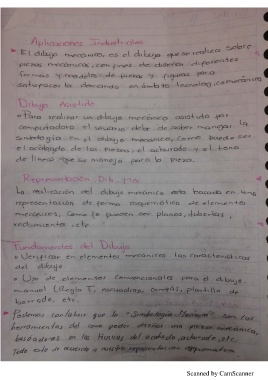 Aplicaciones Industriales
• El dibujo mecánico, es el dibujo que se realiza sobre
piezas mecánicas, con fines de diseñar diferentes
formas y modelos de piezas y figuras para
satisfacer la demanda en ámbito tecnológico, mecánico
Dibujo Asistido
• Para realizar un dibujo mecánico asistido por
computadora el usuario debe de saber manejar la
simbología en el dibujo mecánico, como puede ser
el acotado de las piezas, el achurado y el tipo
de línea que se maneja para la pieza.
Representación Dib.
La realización del dibujo mecánico esta basada en una
representación de forma esquemática de elementos
mecánicos, como lo pueden ser planos,
rodamientos, etc
Fundamentos del Dibujo
• Verificar en elementos mecánicos las características
del dibujo
• Uso de elementos convencionales para el dibujo
manual (Regla T, escuadras, compás, plantilla de
borrado, etc.
Podemos concluir que la "Simbología" son las
herramientas del como poder diseñar una pieza mecánica,
basadas en las líneas del acotado, achurado, etc.
Todo esto de acuerdo a nuestra representación esquemática
Scanned by CamScanner